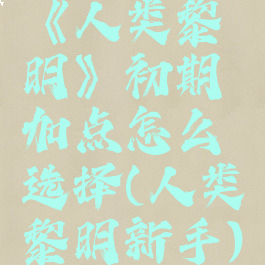 《人类黎
明》初期
加点怎么
选择(人类
黎明新手)